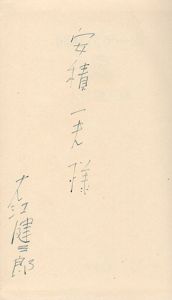 安積一夫様
大江健三郎